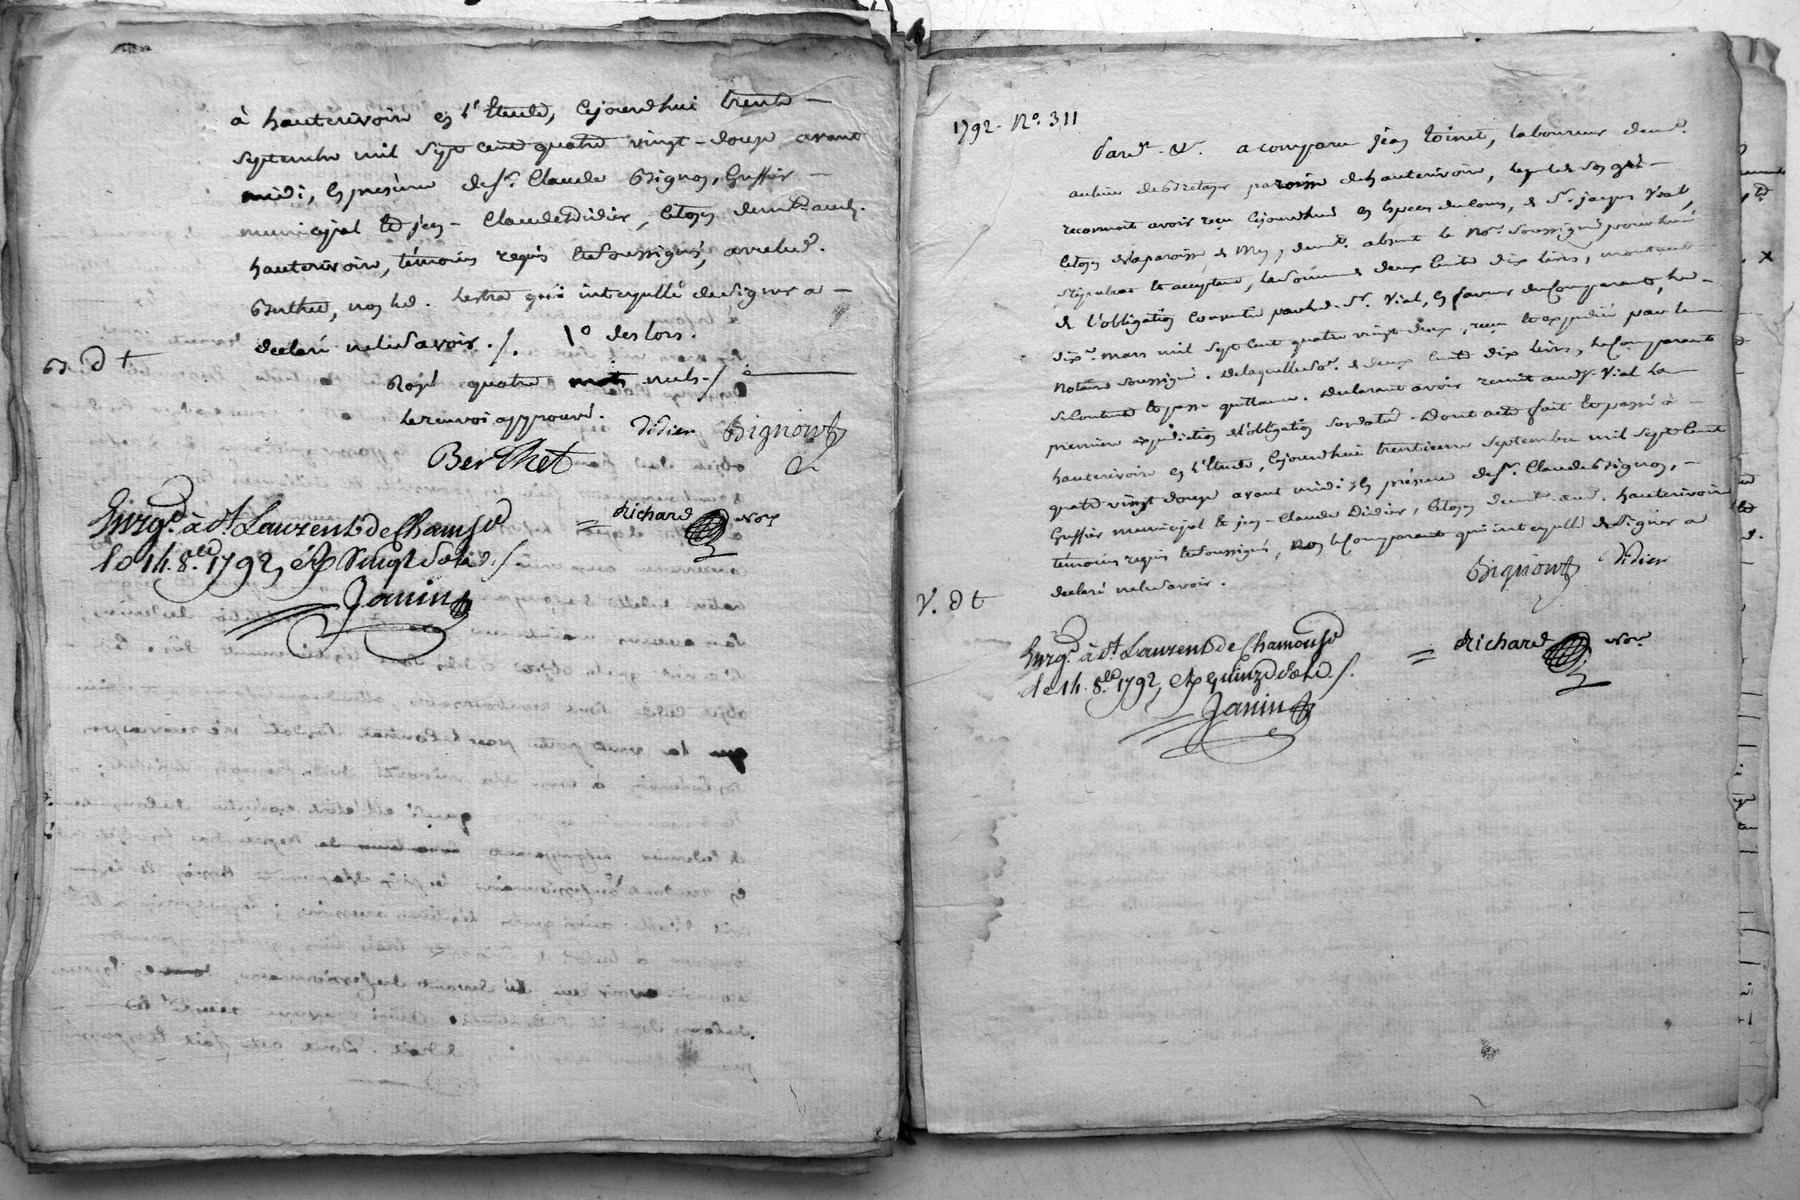 à hauterivoire en l'Etude, Cejourdhui trente
septembre mil sept cent quatre vingt-douze avant
midi, En presence de sr. Claude Bignon, Greffier
municipal et jean-Claude Didier, Citoyen
hauterivoire, témoins requis et soussignés, avec led.
Berthet, non lad. qui interpellé de signer a
déclaré ne le savoir ./. 1° des lors.
Rayé quatre mots nuls ./.
le renvoi approuvé.
Didier Bignon
Berthet
Richard Nore
Enrgé. à St Laurent de Chamousset
le 14. 8.bre 1792,
Janin
1792. No. 311
Pardt. &c. a comparu jean laboureur demt.
au lieu de paroisse de hauterivoire, lequel de son gré
reconnoit avoir reçu Cejourdhui en Especes de Cours, de Sr. jacques Vial,
Citoyen de la paroisse de demt. absent le Nore. soussigné pour lui
stipulant et acceptant, la somme de deux Cents dix livres, montant
de l'obligation Consentie par led. Sr. Vial, En faveur du Comparant, le
dixe. mars mil sept Cent quatre vingt deux, reçue et expédiée par le
Notaire soussigné. De laquelle so.e de deux Cents dix livres, le Comparant
se Contente et passe quittance. Declarant avoir remit aud. sr. Vial la
premiere expédition de l'obligation susdatée. Dont acte fait et passé à
hauterivoire en l'Etude, Cejourdhui trentieme septembre mil sept Cent
quatre vingt douze avant midi En présence de sr. Claude Bignon,
Greffier municipal et jean-Claude Didier, Citoyen demt. aud. hauterivoire
témoins requis et soussignés, Non le Comparant qui interpellé de signer a
déclaré ne le savoir.
Bignon Didier
Richard Nore
Enrgé. à St Laurent de Chamousset
le 14. 8.bre 1792, quinze sols ./.
Janin